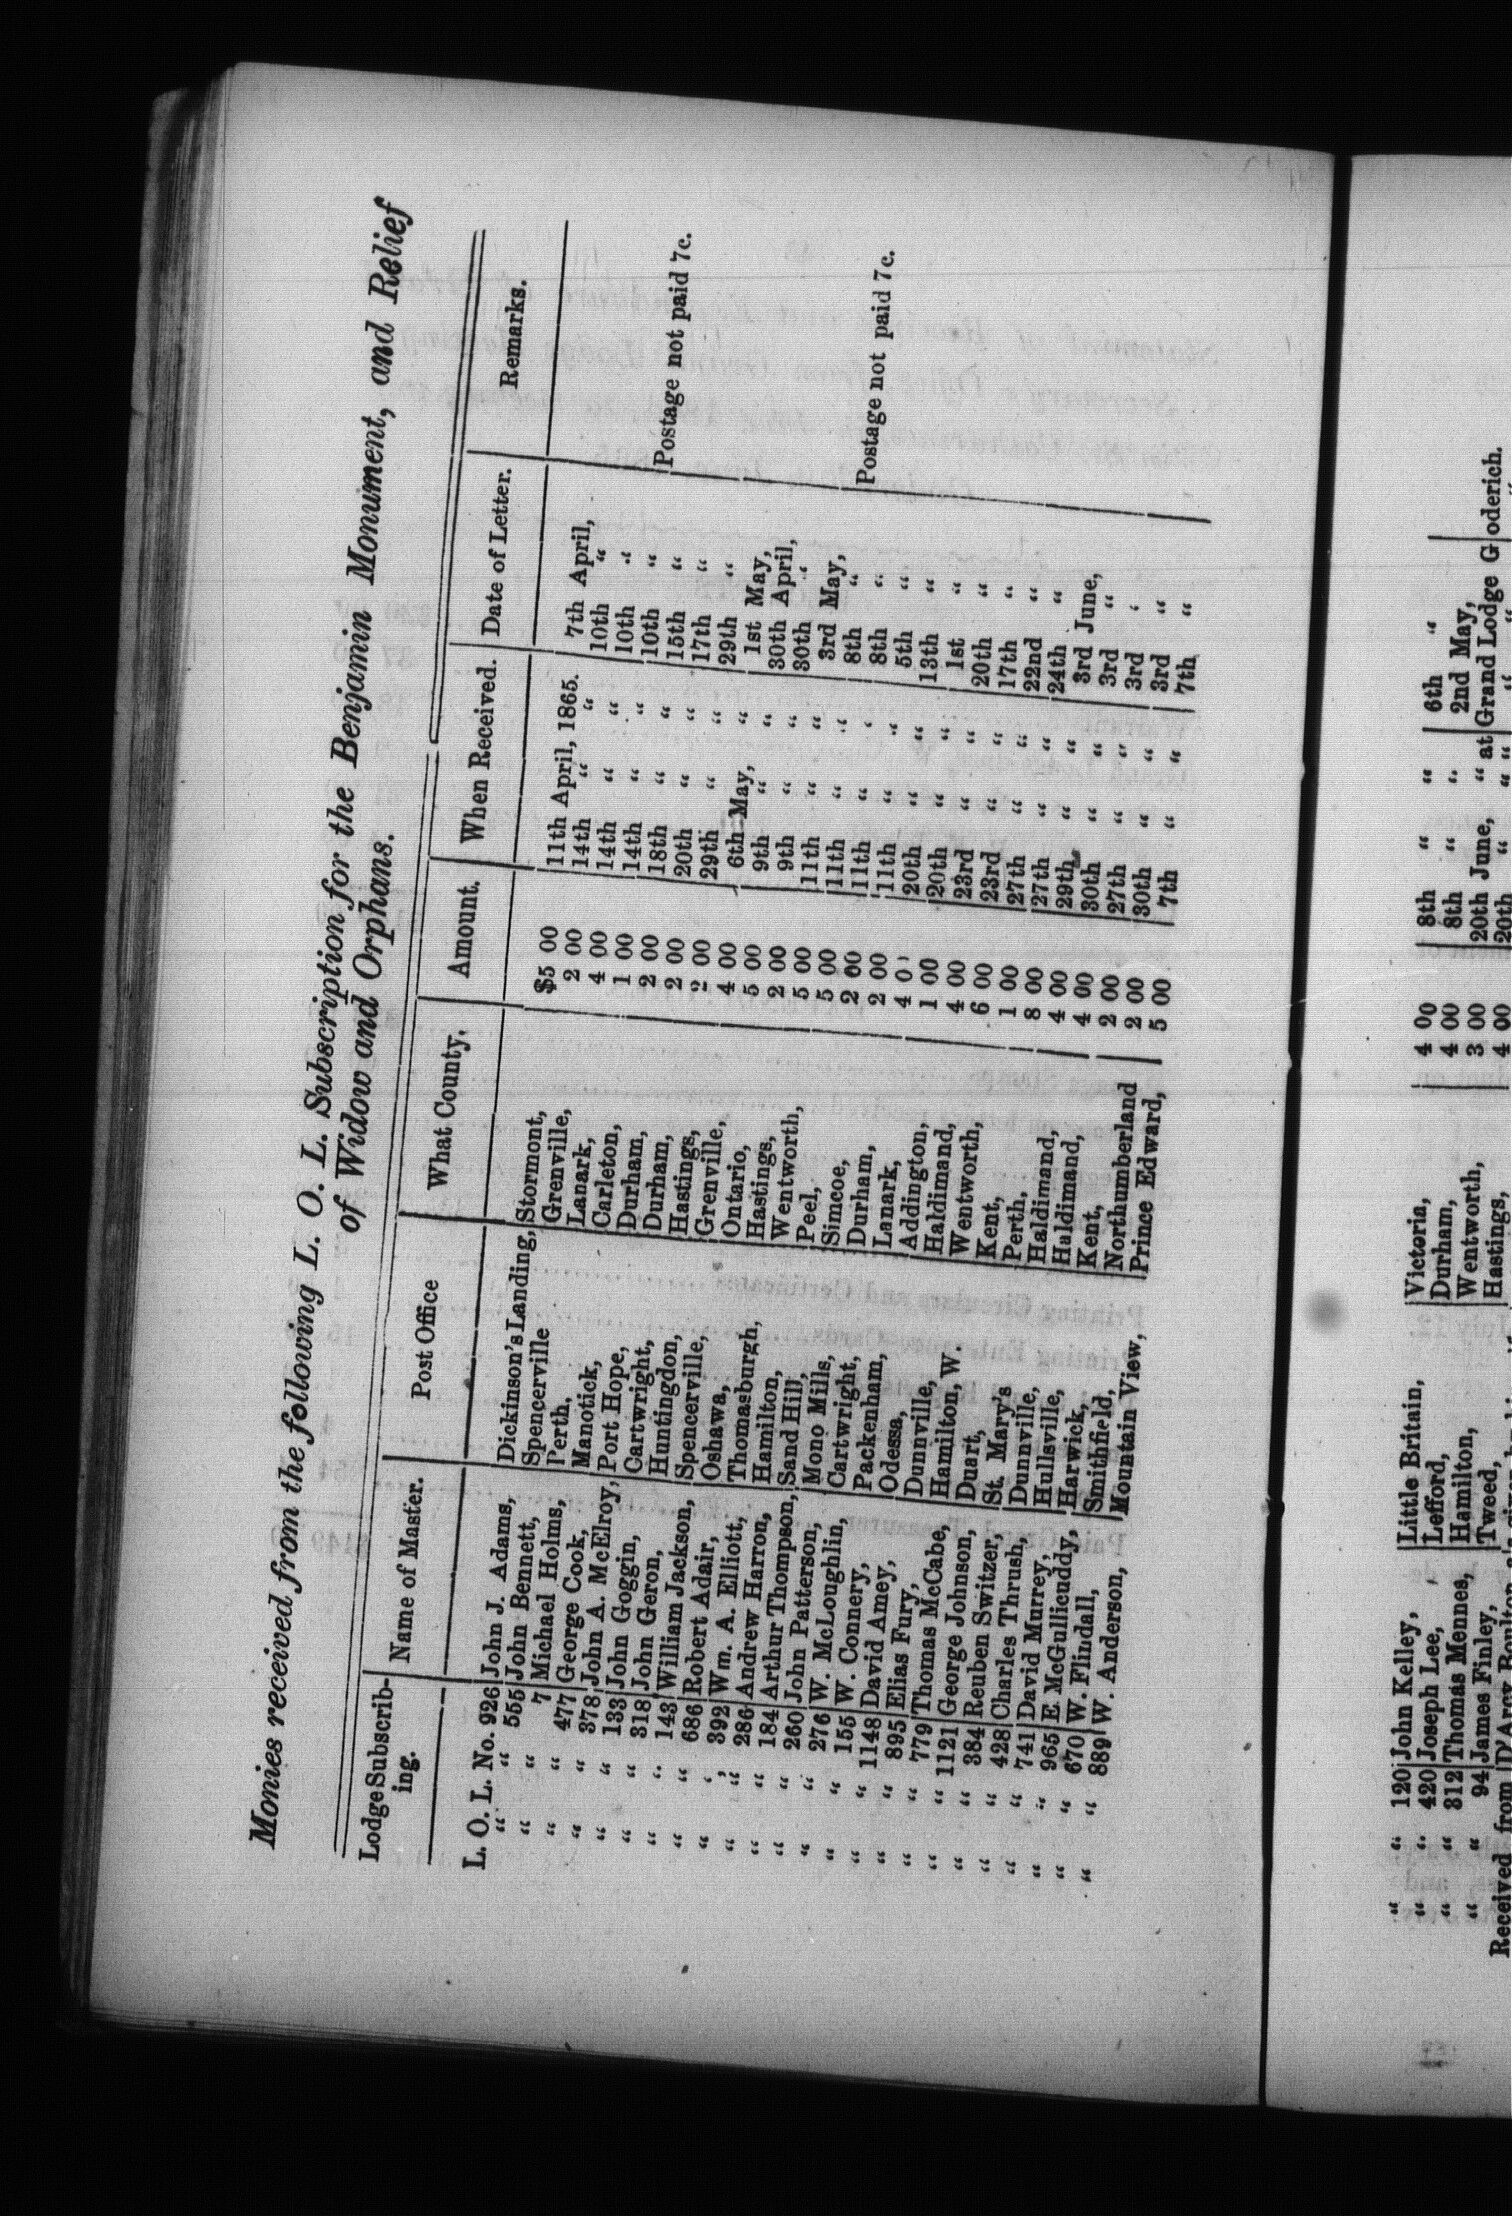 Monies received from the following L. O. L. Subscription for the Benjamin Monument, and Relief
of Widow and Orphans.
Lodge Subscribing. Name of Master. Post Office What County. Amount. When Received. Date of Letter. Remarks.
L. O. L. No. 926 John J. Adams, Dickinson's Landing, Stormont, $5 00 11th April, 1865. 7th April,
" " 555 John Bennett, Spencerville Grenville, 2 00 14th " " 10th "
" " 7 Michael Holms, Perth, Lanark, 4 00 14th " " 10th "
" " 477 George Cook, Manotick, Carleton, 1 00 14th " " 10th " Postage not paid 7c.
" " 378 John A. McElroy, Port Hope, Durham, 2 00 18th " " 15th "
" " 133 John Goggin, Cartwright, Durham, 2 00 20th " " 17th "
" " 318 John Geron, Huntingdon, Hastings, 2 00 29th " " 29th "
" " 143 William Jackson, Spencerville, Grenville, 4 00 6th May, " 1st May,
" " 686 Robert Adair, Oshawa, Ontario, 5 00 9th " " 30th April,
" " 392 Wm. A. Elliott, Thomasburgh, Hastings, 2 00 9th " " 30th "
" " 286 Andrew Harron, Hamilton, Wentworth, 5 00 11th " " 3rd May,
" " 184 Arthur Thompson, Sand Hill, Peel, 5 00 11th " " 8th " Postage not paid 7c.
" " 260 John Patterson, Mono Mills, Simcoe, 2 00 11th " " 8th "
" " 276 W. McLoughlin, Cartwright, Durham, 2 00 11th " " 5th "
" " 155 W. Connery, Packenham, Lanark, 4 0 20th " " 13th "
" " 1148 David Amey, Odessa, Addington, 1 00 20th " " 1st "
" " 895 Elias Fury, Dunnville, Haldimand, 4 00 23rd " " 20th "
" " 779 Thomas McCabe, Hamilton, W. Wentworth, 6 00 23rd " " 17th "
" " 1121 George Johnson, Duart, Kent, 1 00 27th " " 22nd "
" " 384 Reuben Switzer, St. Mary's Perth. 8 00 27th " " 24th "
" " 428 Charles Thrush, Dunnville, Haldimand, 4 00 29th " " 3rd June,
" " 741 David Murrey, Hullsville, Haldimand, 4 00 30th " " 3rd "
" " 965 E McGullicuddy, Harwick, Kent, 2 00 27th " " 3rd "
" " 670 W. Flindall, Smithfield, Northumberland 2 00 30th " " 3rd "
" " 889 W. Anderson, Mountain View, Prince Edward, 5 00 7th " " 7th "
" " 120 John Kelley, Little Britain, Victoria, 4 00 8th " " 6th "
" " 420 Joseph Lee, Lefford, Durham, 4 00 8th " " 2nd May,
" " 312 Thomas Mennes, Hamilton, Wentworth, 3 00 20th June, " at Grand Lodge Goderich.
" " 94 James Finley, Tweed, Hastings, 4 00 20th " " " "
Received from